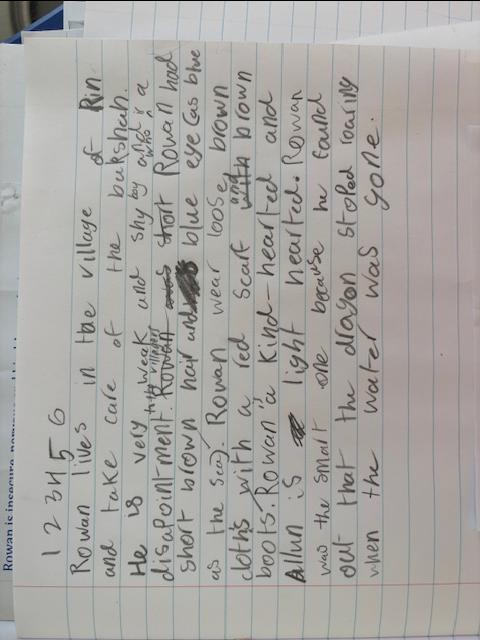 Rowan is insecure, nervous
1 2 3 4 5 6
Rowan lives in the village of Rin
and take care of the bukshah.
He is very weak and shy boy and who is a
villagers
disapointment. Rowan short Rowan had
short brown hair and blue eye (as blue
as the sea). Rowan wear loose, brown
cloths with a red scarf and with brown
boots. Rowan is a kind-hearted and
Allun is light hearted. Rowan
was the smart one because he found
out that the dragon stoped roaring
when the water was gone.